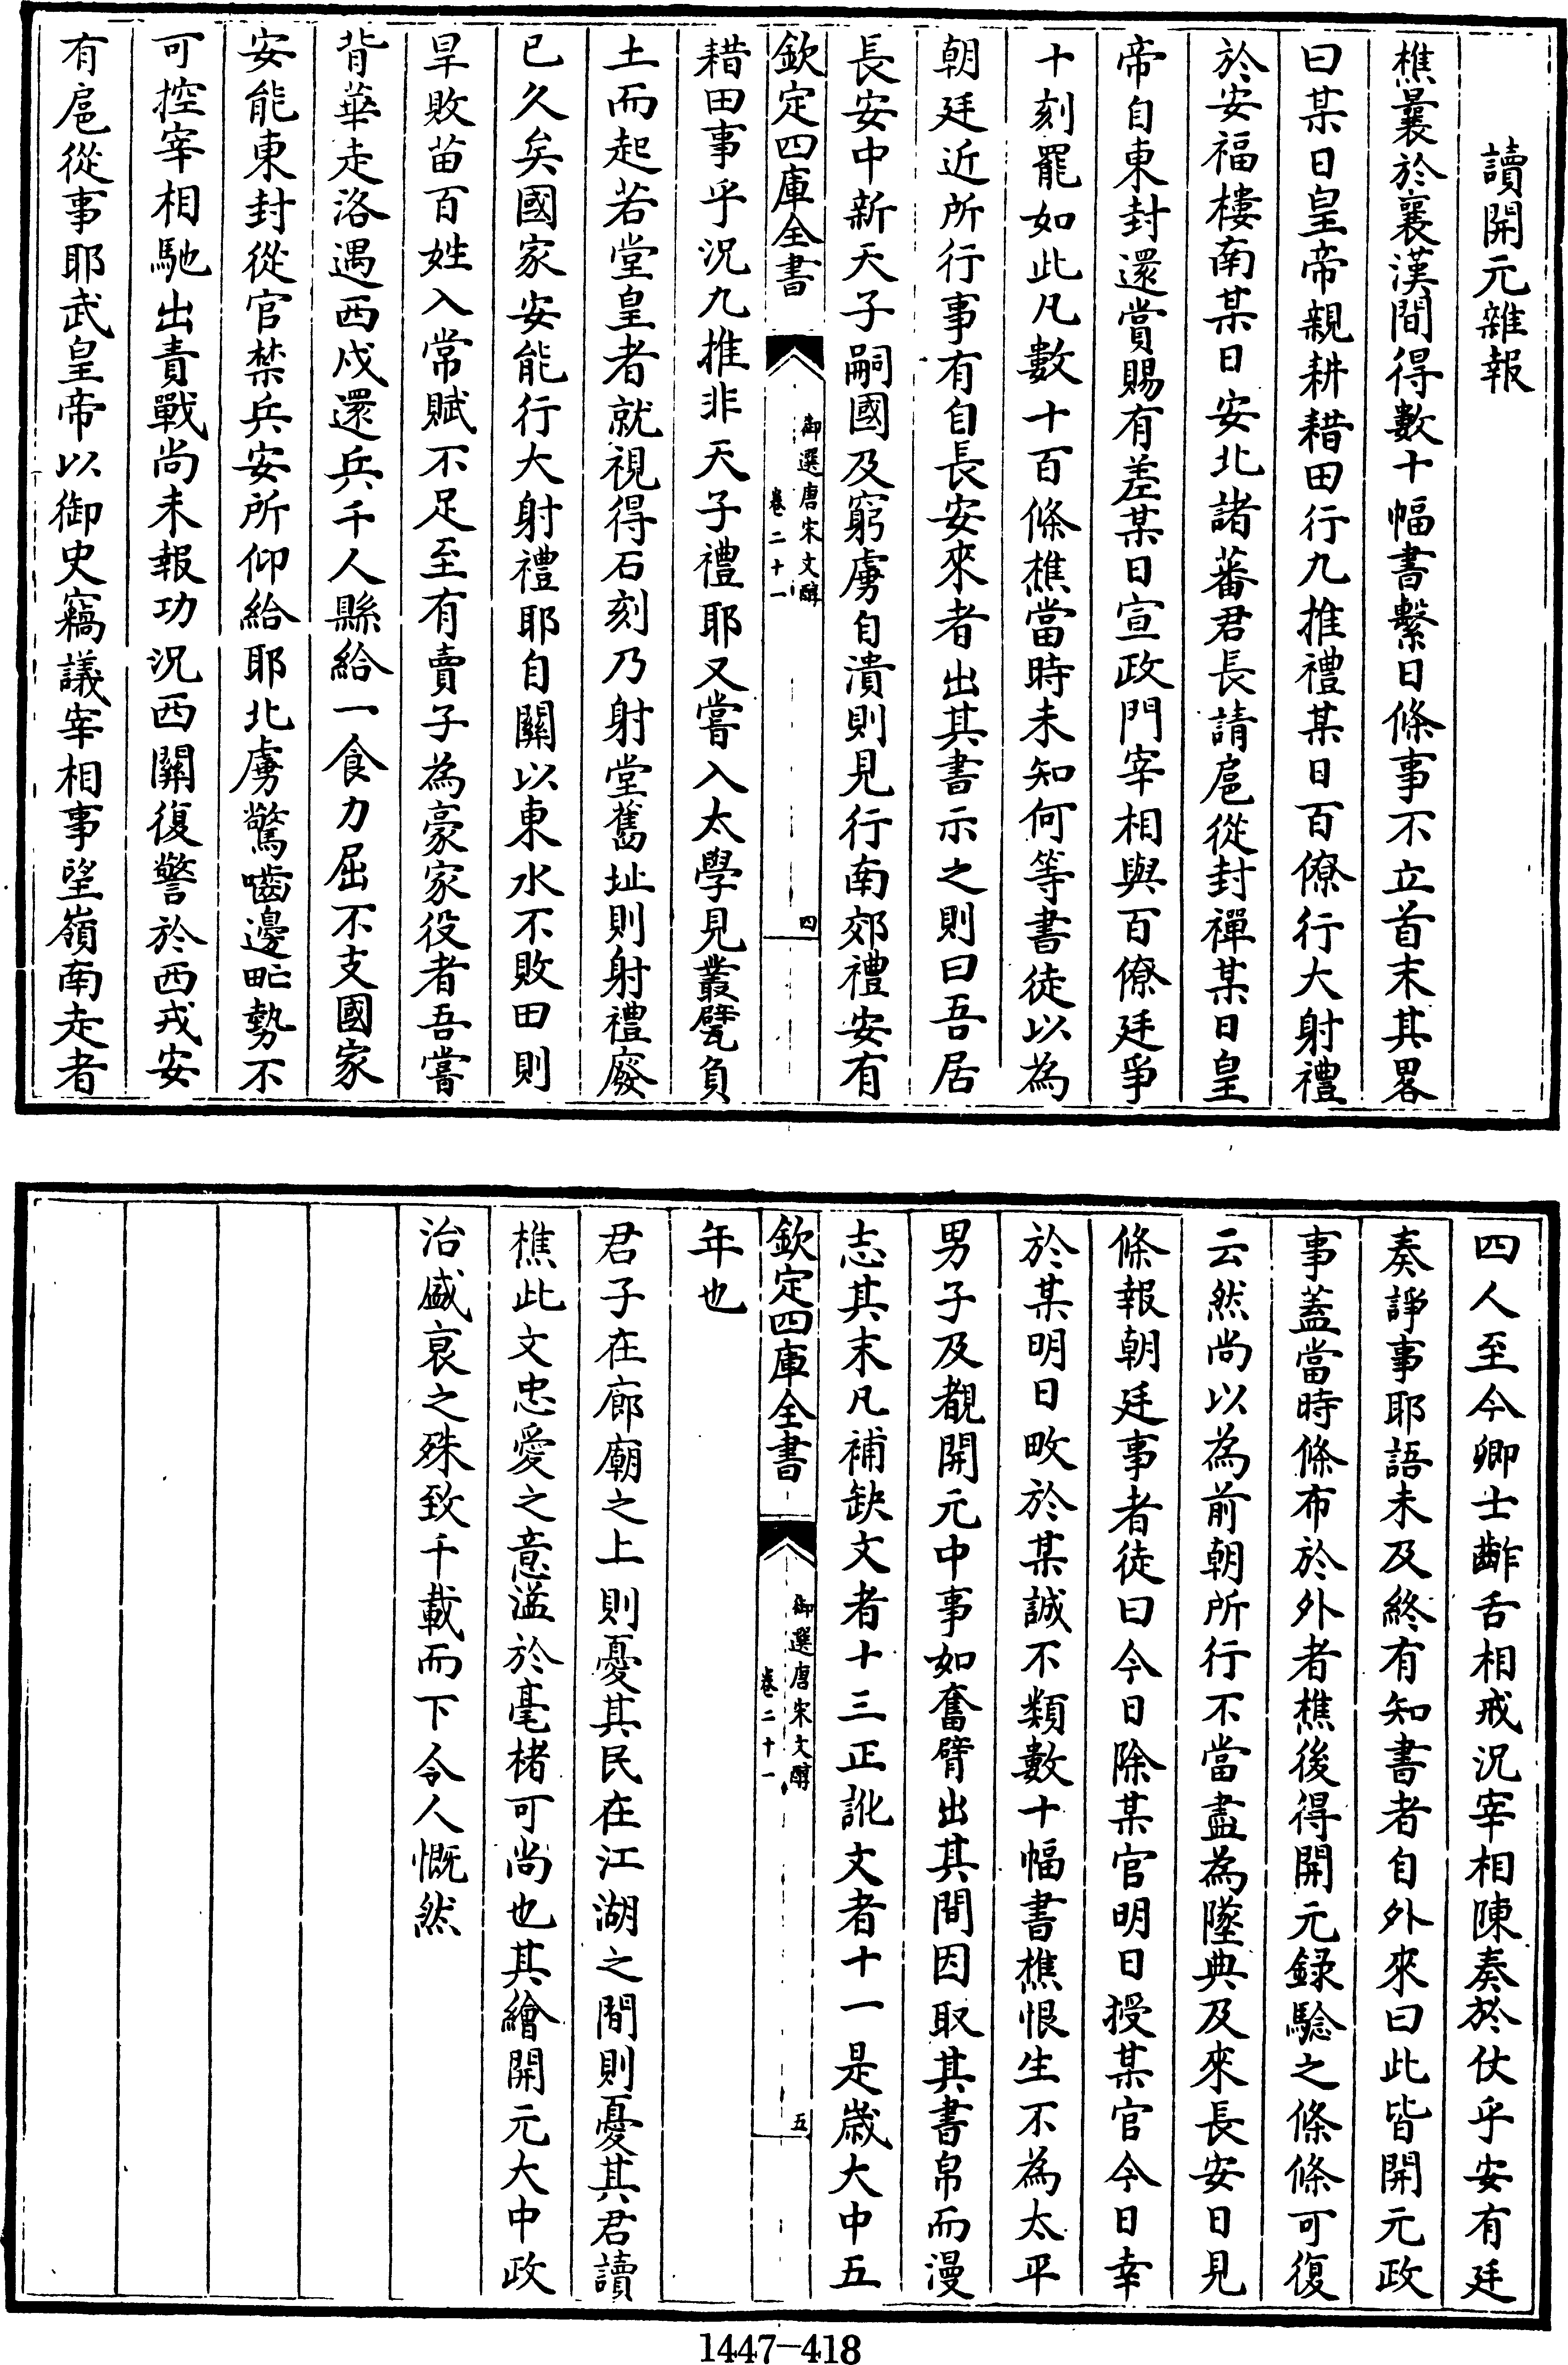 讀開元雜報
樵曩於襄漢間得數十幅書繫日條事不立首末其畧
曰某日皇帝親耕耤田行九推禮某日百僚行大射禮
於安福樓南某日安北諸蕃君長請扈從封禪某日皇
帝自東封還賞賜有差某日宣政門宰相與百僚廷爭
十刻罷如此凡數十百條樵當時未知何等書徒以為
朝廷近所行事有自長安來者出其書示之則曰吾居
長安中新天子嗣國及窮虜自潰則見行南郊禮安有
欽定四庫全書
御選唐宋文醇
卷二十一
四
耤田事乎況九推非天子禮耶又嘗入太學見叢甓負
土而起若堂皇者就視得石刻乃射堂舊址則射禮廢
已久矣國家安能行大射禮耶自關以東水不敗田則
旱敗苗百姓入常賦不足至有賣子為豪家役者吾嘗
背華走洛遇西戍還兵千人縣給一食力屈不支國家
安能東封從官禁兵安所仰給耶北虜驚嚙邊甿勢不
可控宰相馳出責戰尚未報功況西關復警於西戎安
有扈從事耶武皇帝以御史竊議宰相事望嶺南走者
四人至今卿士齰舌相戒況宰相陳奏於仗乎安有廷
奏諍事耶語未及終有知書者自外來曰此皆開元政
事蓋當時條布於外者樵後得開元錄驗之條條可復
云然尚以為前朝所行不當盡為墜典及來長安日見
條報朝廷事者徒曰今日除某官明日授某官今日幸
於某明日畋於某誠不類數十幅書樵恨生不為太平
男子及覩開元中事如奮臂出其間因取其書帛而漫
志其末凡補缺文者十三正訛文者十一是歲大中五
欽定四庫全書
御選唐宋文醇
卷二十一
五
年也
君子在廊廟之上則憂其民在江湖之間則憂其君讀
樵此文忠愛之意溢於毫楮可尚也其繪開元大中政
治盛衰之殊致千載而下令人慨然
1447-418